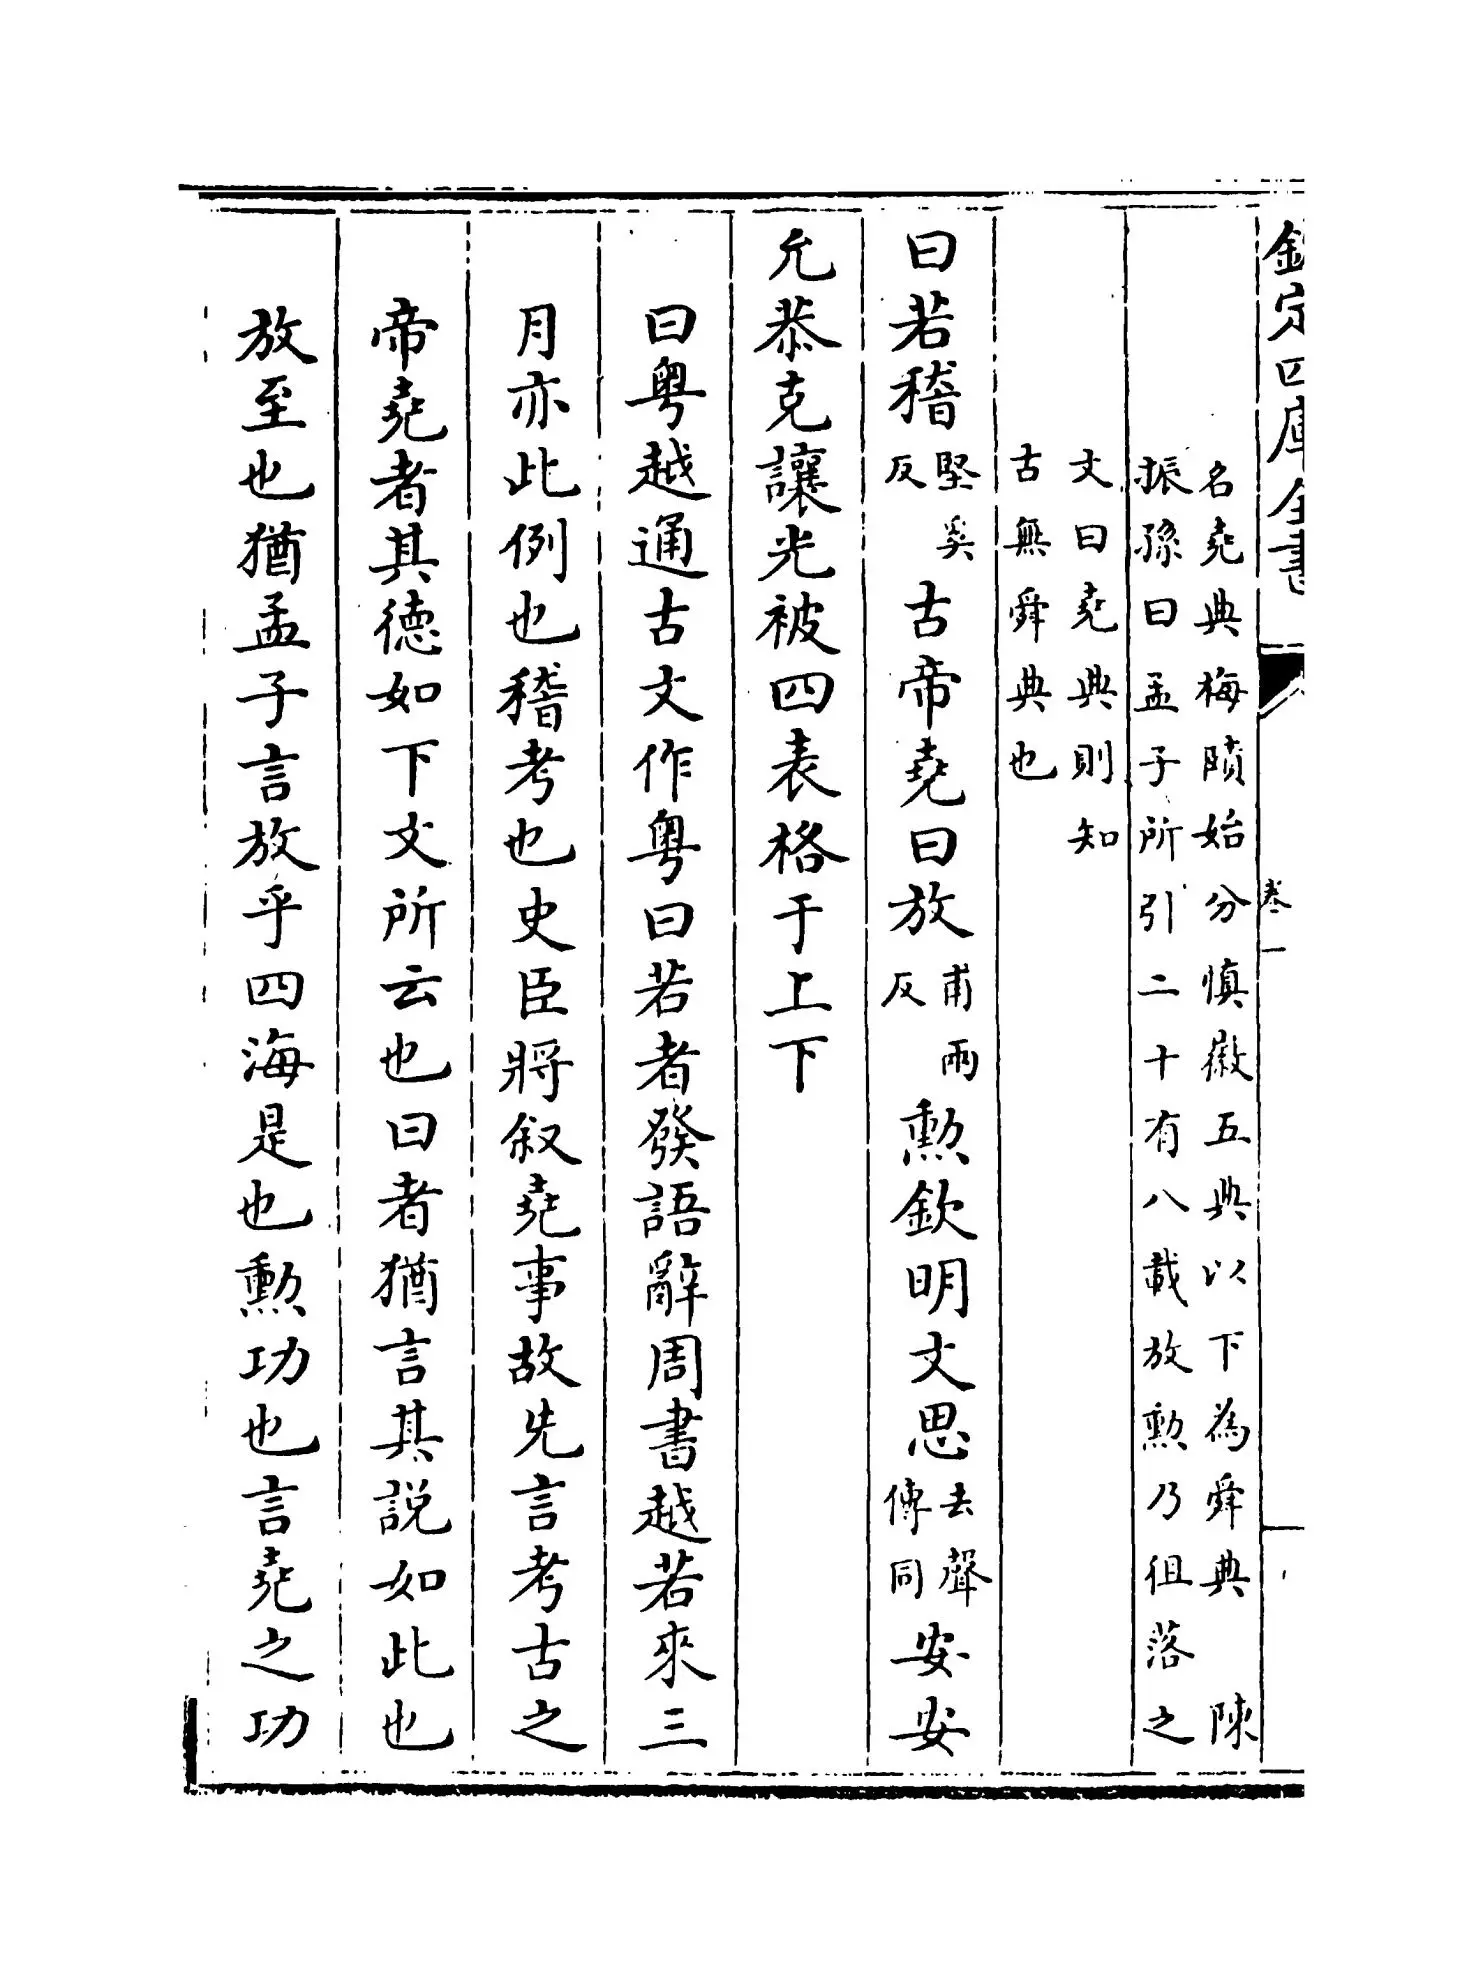 欽定四庫全書
卷一
名堯典梅賾始分慎徽五典以下為舜典 陳
振孫曰孟子所引二十有八載放勲乃徂落之
文曰堯典則知
古無舜典也
曰若稽堅奚反古帝堯曰放甫兩反勲欽明文思去聲傳同安安
允恭克讓光被四表格于上下
曰粤越通古文作粤曰若者發語辭周書越若來三
月亦此例也稽考也史臣將叙堯事故先言考古之
帝堯者其德如下文所云也曰者猶言其說如此也
放至也猶孟子言放乎四海是也勲功也言堯之功